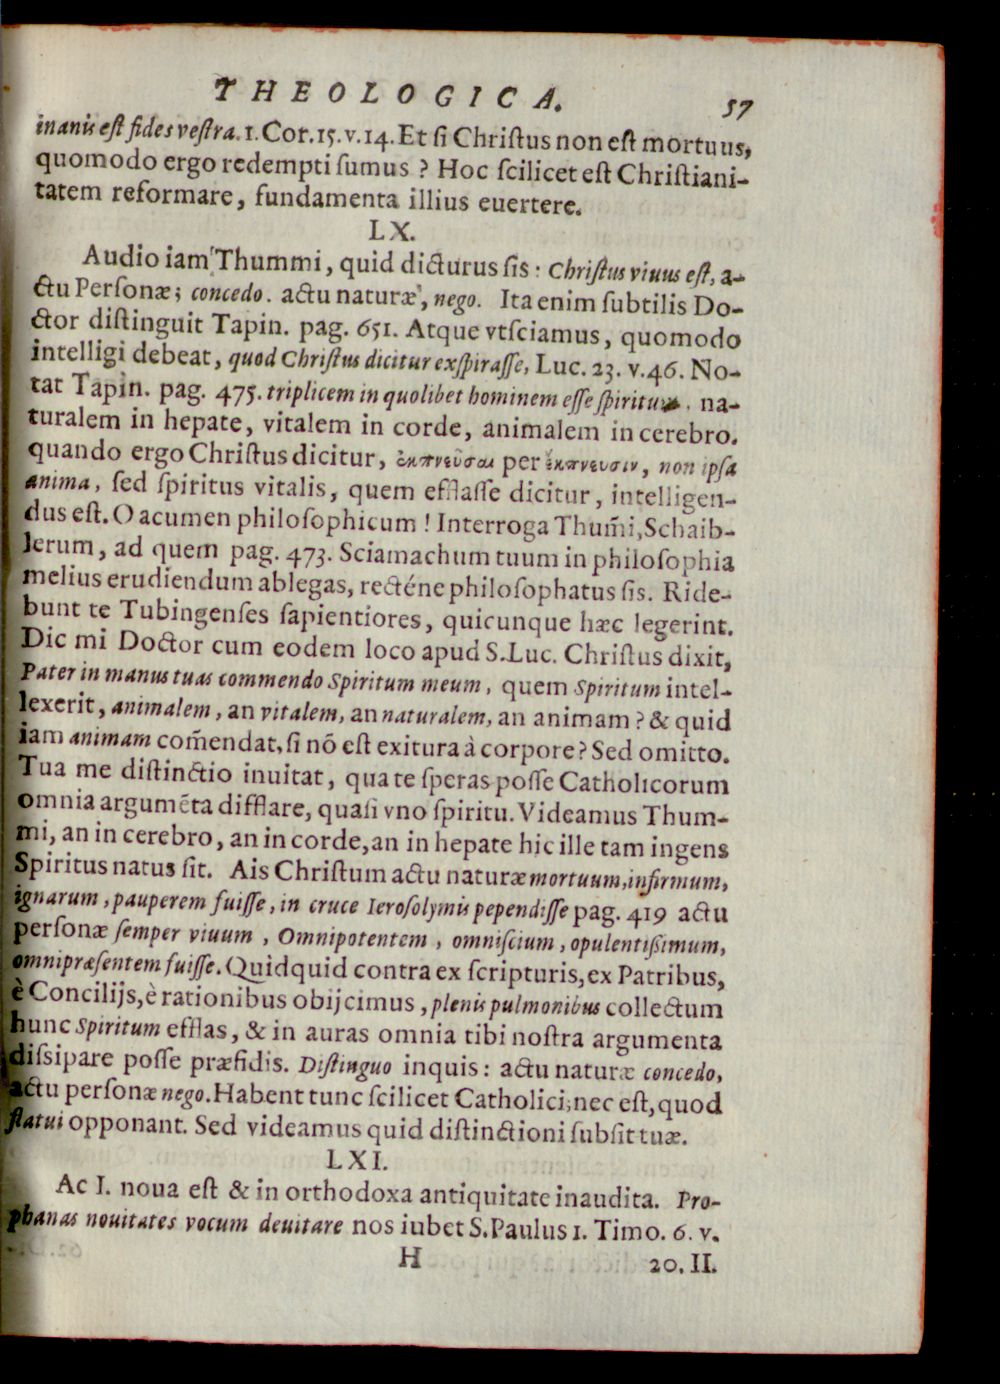 THEOLOGICA. 57
inanis est fides vestra. 1. Cor. 15. v. 14. Et si Christus non est mortuus,
quomodo ergo redempti sumus ? Hoc scilicet est Christiani-
tatem reformare, fundamenta illius euertere.
LX.
Audio iam Thummi, quid dicturus sis : Christus viuus est, a-
ctu Personæ; concedo. actu naturæ, nego. Ita enim subtilis Do-
ctor distinguit Tapin. pag. 651. Atque vt sciamus, quomodo
intelligi debeat, quod Christus dicitur exspirasse, Luc. 23. v. 46. No-
tat Tapin. pag. 475. triplicem in quolibet hominem esse spiritum. na-
turalem in hepate, vitalem in corde, animalem in cerebro.
quando ergo Christus dicitur, ἐκπνεῦσαι per ἔκπνευσιν, non ipsa
anima, sed spiritus vitalis, quem efflasse dicitur, intelligen-
dus est. O acumen philosophicum ! Interroga Thum̃i, Schaib-
lerum, ad quem pag. 473. Sciamachum tuum in philosophia
melius erudiendum ablegas, recténe philosophatus sis. Ride-
bunt te Tubingenses sapientiores, quicunque hæc legerint.
Dic mi Doctor cum eodem loco apud S. Luc. Christus dixit,
Pater in manus tuas commendo Spiritum meum, quem Spiritum intel-
lexerit, animalem, an vitalem, an naturalem, an animam ? & quid
iam animam com̃endat, si nõ est exitura à corpore ? Sed omitto.
Tua me distinctio inuitat, qua te speras posse Catholicorum
omnia argumẽta difflare, quasi vno spiritu. Videamus Thum-
mi, an in cerebro, an in corde, an in hepate hic ille tam ingens
Spiritus natus sit. Ais Christum actu naturæ mortuum, infirmum,
ignarum, pauperem fuisse, in cruce Ierosolymis pependisse pag. 419 actu
personæ semper viuum, Omnipotentem, omniscium, opulentißimum,
omnipræsentem fuisse. Quidquid contra ex scripturis, ex Patribus,
è Concilijs, è rationibus obijcimus, plenis pulmonibus collectum
hunc Spiritum efflas, & in auras omnia tibi nostra argumenta
dissipare posse præfidis. Distinguo inquis : actu naturæ concedo,
actu personæ nego. Habent tunc scilicet Catholici, nec est, quod
statui opponant. Sed videamus quid distinctioni subsit tuæ.
LXI.
Ac I. noua est & in orthodoxa antiquitate inaudita. Pro-
phanas nouitates vocum deuitare nos iubet S. Paulus 1. Timo. 6. v.
H 20. II.